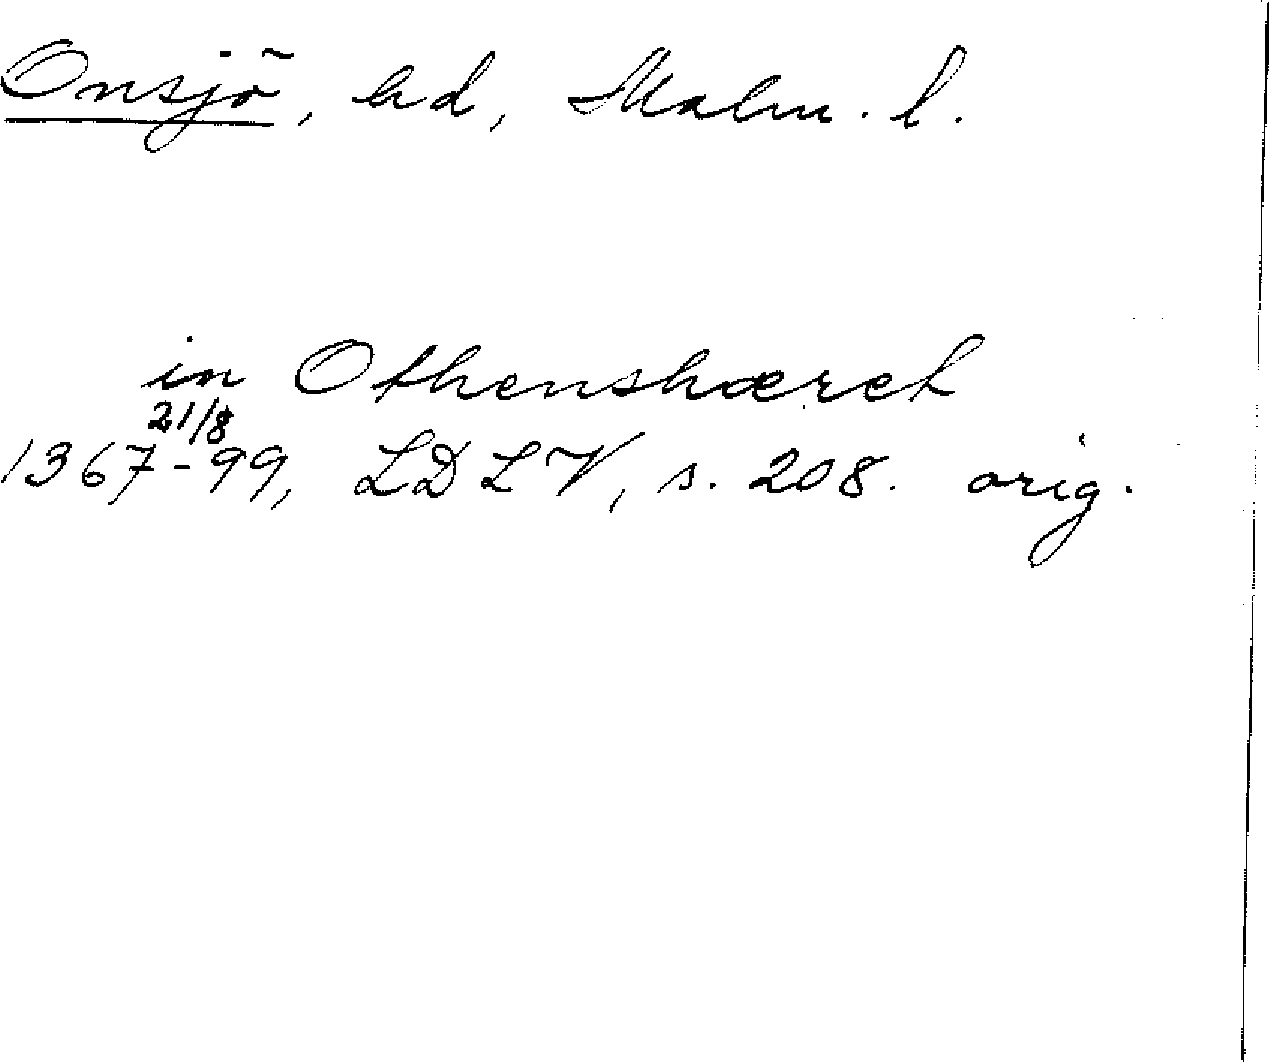 Onsjö, hd, Malm. l.
in Othenshæret
21/8
1367-99, LDLV, s. 208. orig.